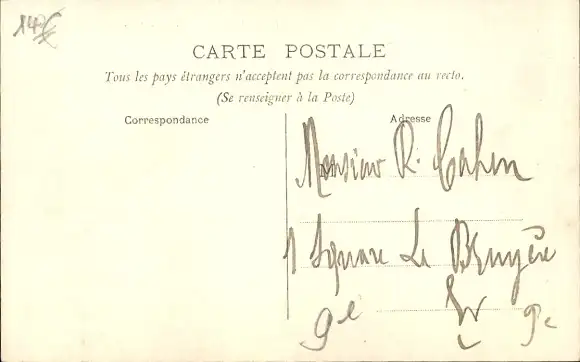 CARTE POSTALE
Tous les pays étrangers n'acceptent pas la correspondance au recto.
(Se renseigner à la Poste)
Correspondance
Adresse
Monsieur R. Cahen
1 Square La Bruyère
9e